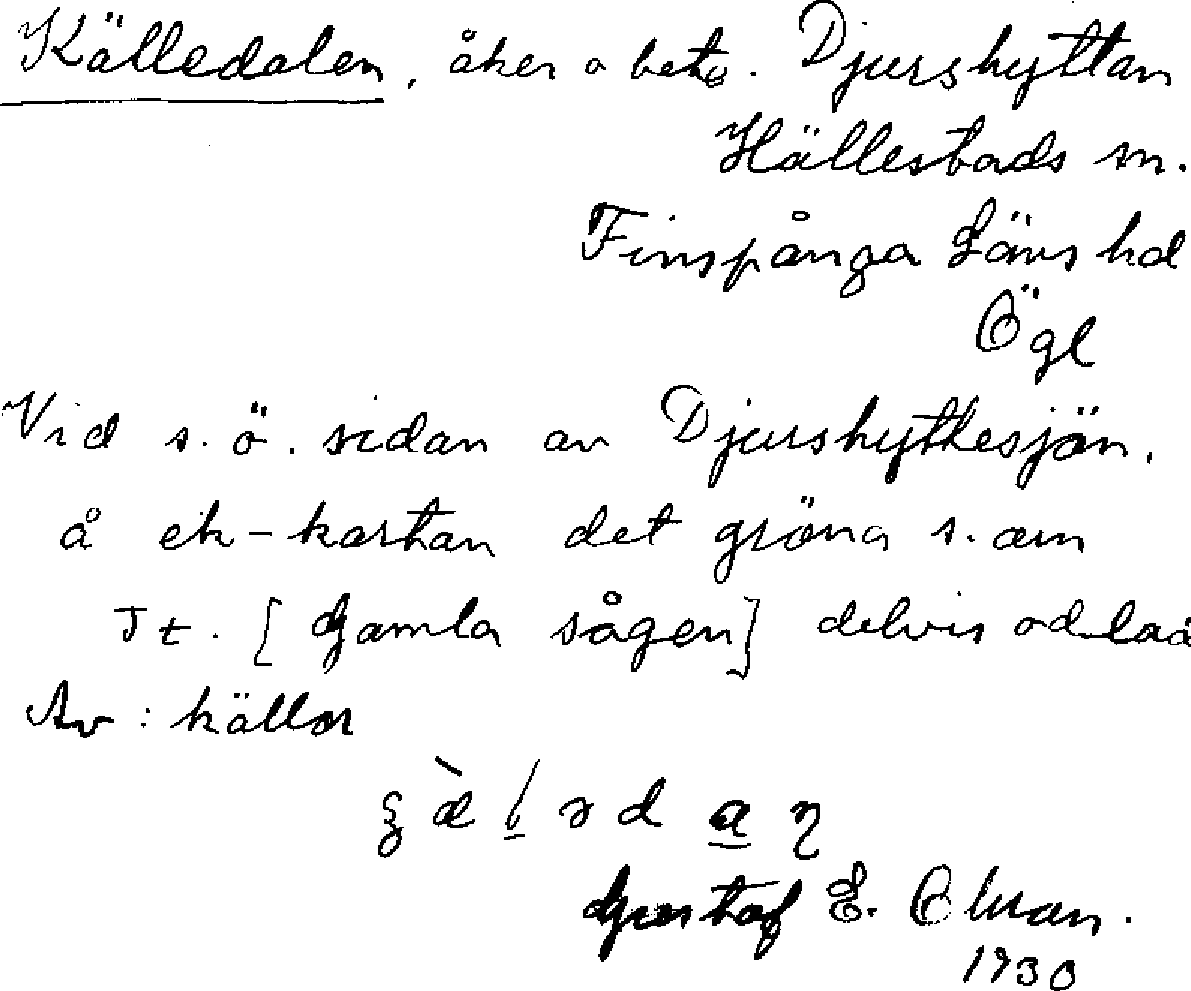 Källedalen, åker o bete. Djurshyttan
Hällestads sn.
Finspånga Läns hd
Ögl
Vid s. ö. sidan av Djurshyttesjön.
å ek-kartan det gröna s. om
Jt. [Gamla sågen] delvis odlad
Av: källor
Gustaf E. Olman.
1930